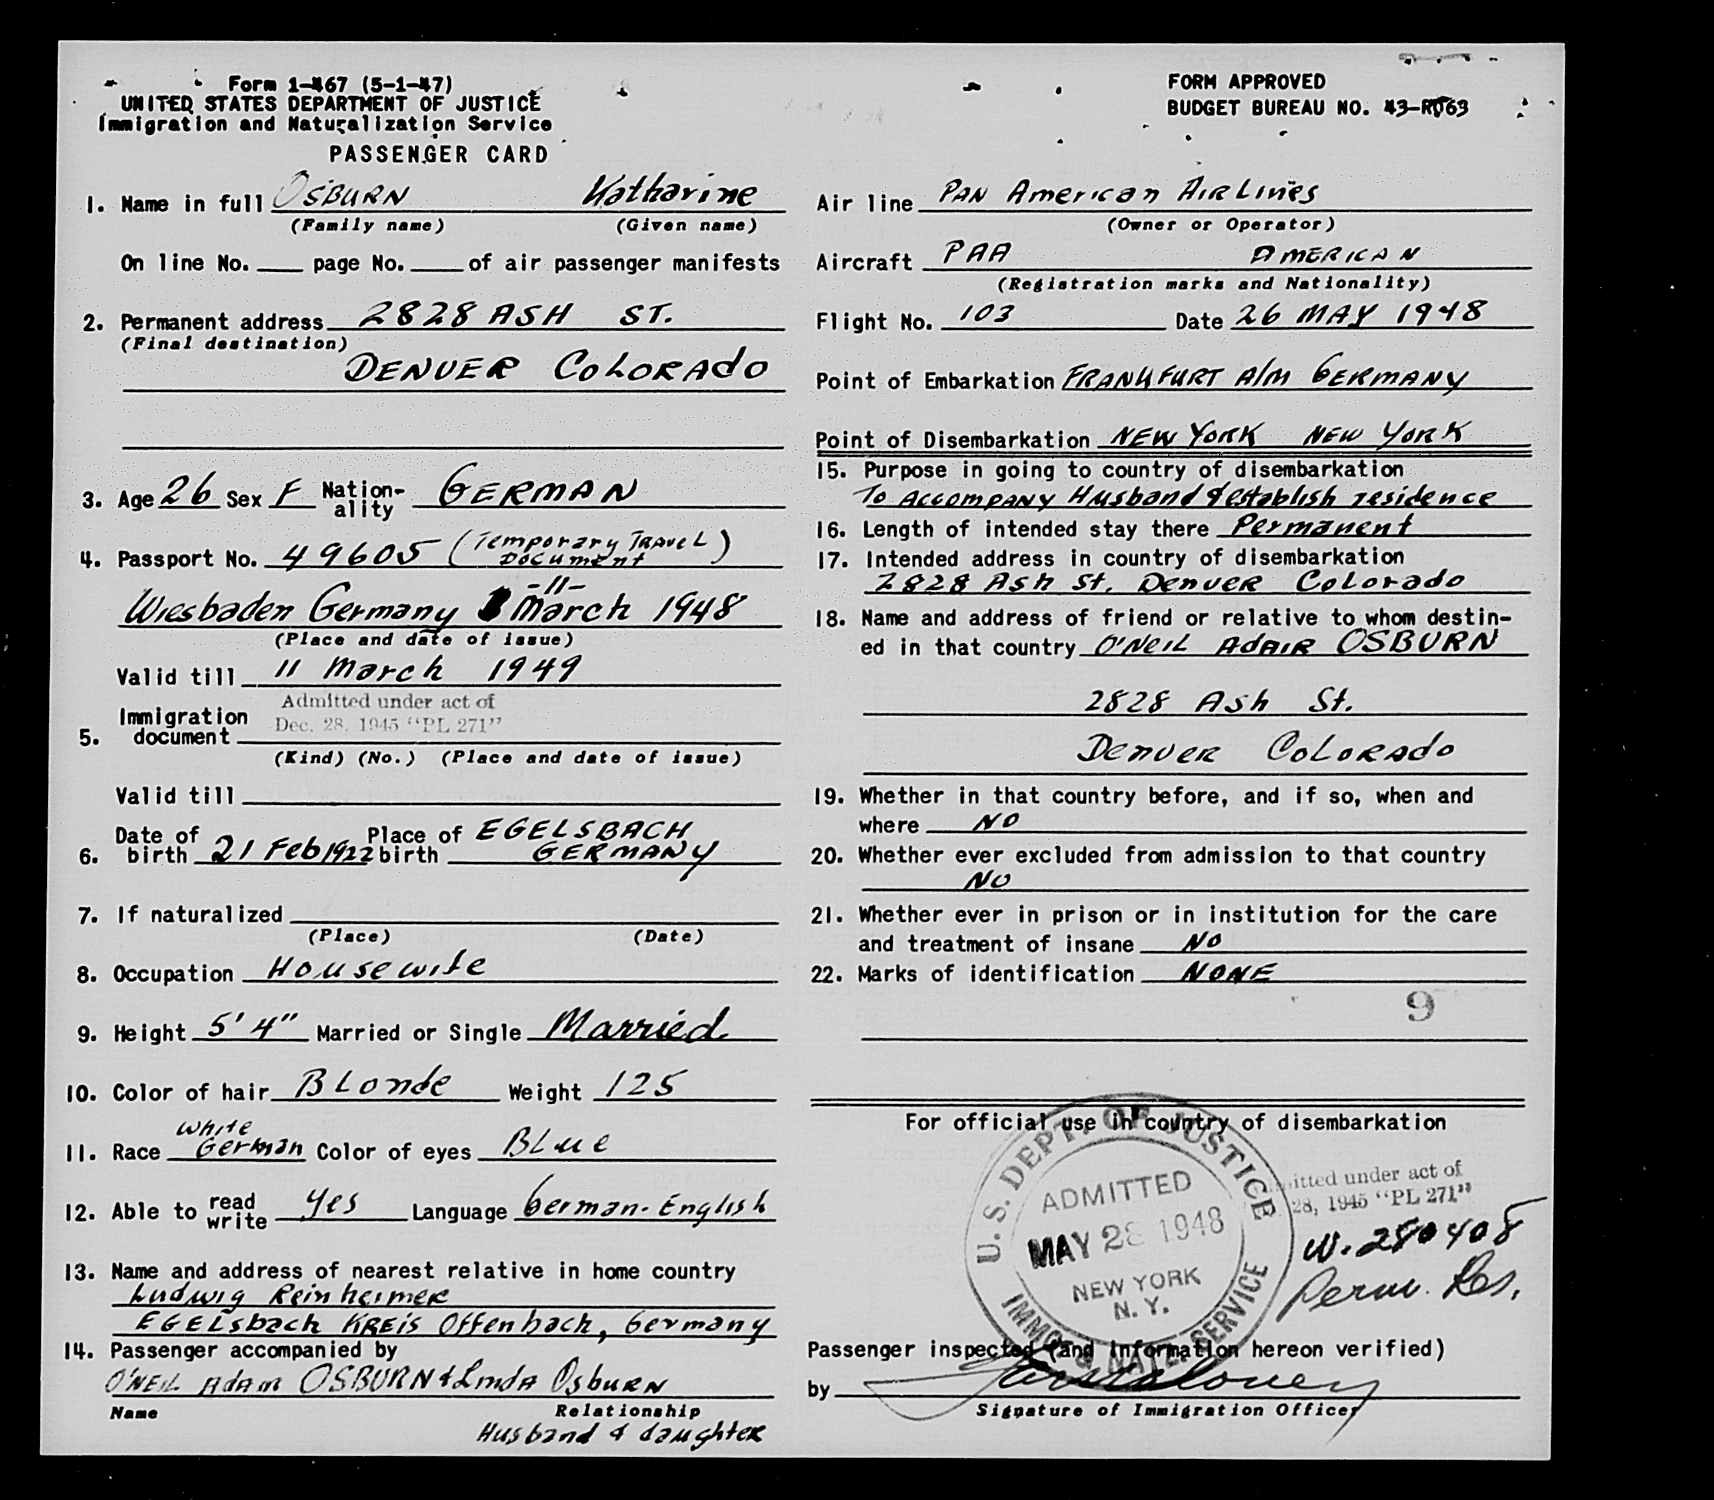 Form 1-467 (5-1-47)
UNITED STATES DEPARTMENT OF JUSTICE
Immigration and Naturalization Service
PASSENGER CARD
FORM APPROVED
BUDGET BUREAU NO. 43-R063
1. Name in full OSBURN Katharine
(Family name) (Given name)
On line No. page No. of air passenger manifests
2. Permanent address 2828 ASH ST.
(Final destination)
DENVER COLORADO
3. Age 26 Sex F Nation-ality GERMAN
4. Passport No. 49605 (Temporary TRAVEL Document)
-11-
Wiesbaden Germany March 1948
(Place and date of issue)
Valid till 11 March 1949
Admitted under act of
Dec. 28, 1945 "PL 271"
5. Immigration document
(Kind) (No.) (Place and date of issue)
Valid till
6. Date of birth 21 Feb 1922 Place of birth EGELSBACH GERMANY
7. If naturalized
(Place) (Date)
8. Occupation Housewife
9. Height 5' 4" Married or Single Married
10. Color of hair Blonde Weight 125
White
11. Race German Color of eyes Blue
12. Able to read write Yes Language German-English
13. Name and address of nearest relative in home country
Ludwig Reinheimer
EGELSbach KREIS Offenbach, Germany
14. Passenger accompanied by
O'NEIL ADAIR OSBURN & Linda Osburn
Name Relationship
Husband & daughter
Air line PAN American AIRLINES
(Owner or Operator)
Aircraft PAA AMERICAN
(Registration marks and Nationality)
Flight No. 103 Date 26 MAY 1948
Point of Embarkation FRANKFURT A/M GERMANY
Point of Disembarkation NEW YORK NEW YORK
15. Purpose in going to country of disembarkation
To ACCOMPANY Husband & establish residence
16. Length of intended stay there Permanent
17. Intended address in country of disembarkation
2828 Ash St. Denver Colorado
18. Name and address of friend or relative to whom destin-
ed in that country O'NEIL ADAIR OSBURN
2828 Ash St.
Denver Colorado
19. Whether in that country before, and if so, when and
where NO
20. Whether ever excluded from admission to that country
NO
21. Whether ever in prison or in institution for the care
and treatment of insane NO
22. Marks of identification NONE
9
For official use in country of disembarkation
U.S. DEPT. OF JUSTICE
ADMITTED
MAY 28 1948
NEW YORK
N. Y.
IMMIG. & NATZ. SERVICE
itted under act of
28, 1945 "PL 271"
W. 280408
Perm. Res.
Passenger inspected (and information hereon verified)
by
Signature of Immigration Officer